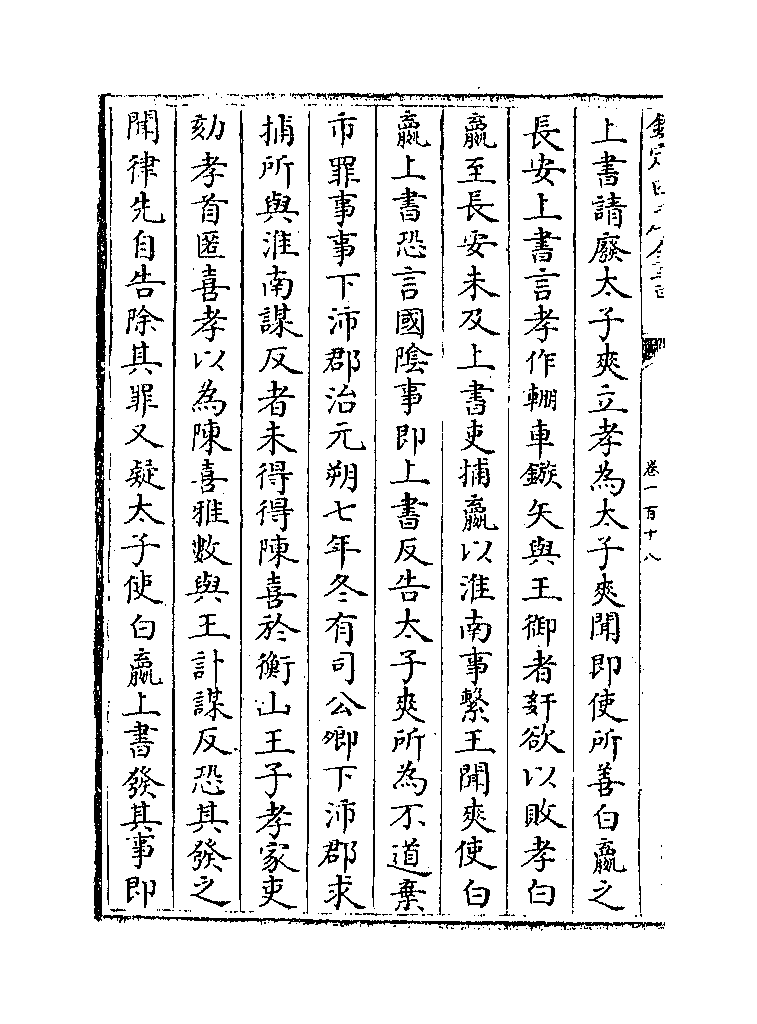 上書請廢太子爽立孝為太子爽聞即使所善白嬴之
長安上書言孝作輣車鏃矢與王御者姧欲以敗孝白
嬴至長安未及上書吏捕嬴以淮南事繫王聞爽使白
嬴上書恐言國陰事即上書反告太子爽所為不道棄
市罪事事下沛郡治元朔七年冬有司公卿下沛郡求
捕所與淮南謀反者未得得陳喜於衡山王子孝家吏
劾孝首匿喜孝以為陳喜雅數與王計謀反恐其發之
聞律先自告除其罪又疑太子使白嬴上書發其事即
卷一百十八